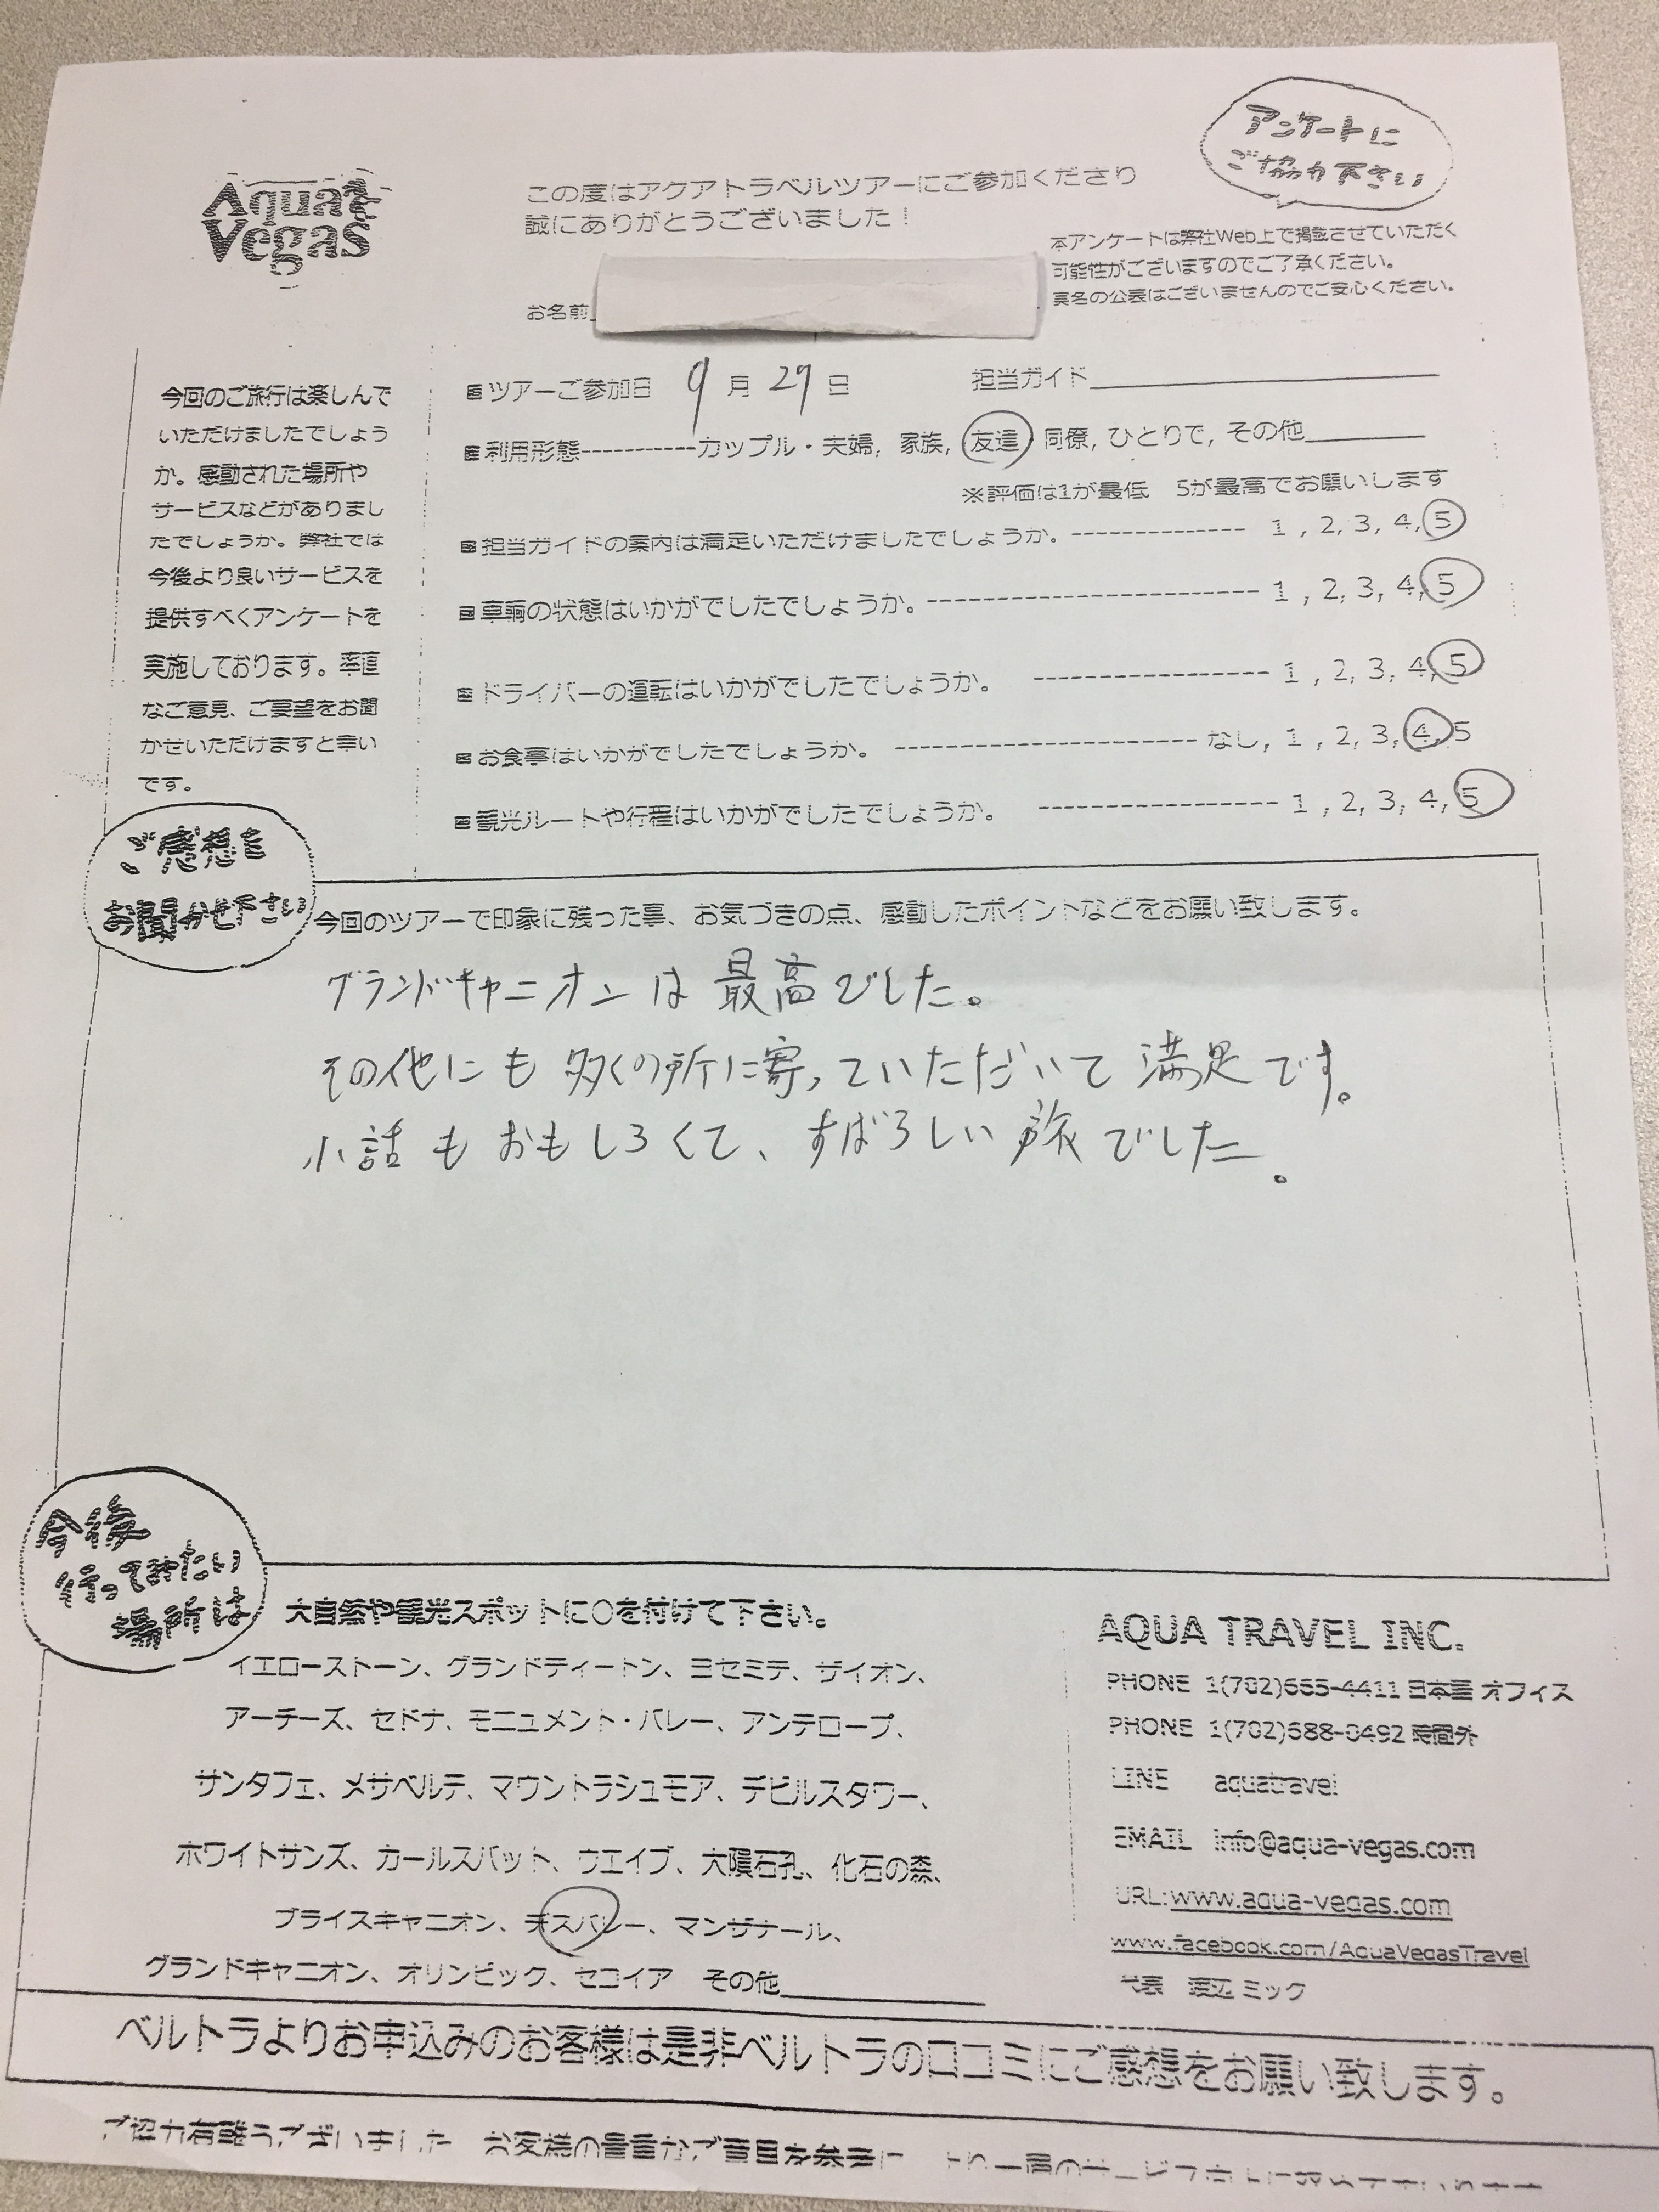 アンケートに
ご協力下さい
Aqua
Vegas
この度はアクアトラベルツアーにご参加くださり
誠にありがとうございました!
本アンケートは弊社Web上で掲載させていただく
可能性がございますのでご了承ください。
実名の公表はございませんのでご安心ください。
お名前
今回のご旅行は楽しんで
いただけましたでしょう
か。感動された場所や
サービスなどがありまし
たでしょうか。弊社では
今後より良いサービスを
提供すべくアンケートを
実施しております。率直
なご意見、ご要望をお聞
かせいただけますと幸い
です。
ツアーご参加日 9月29日 担当ガイド
利用形態----------カップル・夫婦, 家族, 友達, 同僚, ひとりで, その他
※評価は1が最低 5が最高でお願いします
担当ガイドの案内は満足いただけましたでしょうか。------------- 1, 2, 3, 4, 5
車輌の状態はいかがでしたでしょうか。------------------------- 1, 2, 3, 4, 5
ドライバーの運転はいかがでしたでしょうか。 ----------------- 1, 2, 3, 4, 5
お食事はいかがでしたでしょうか。 ---------------------- なし, 1, 2, 3, 4, 5
観光ルートや行程はいかがでしたでしょうか。 ----------------- 1, 2, 3, 4, 5
ご感想を
お聞かせ下さい
今回のツアーで印象に残った事、お気づきの点、感動したポイントなどをお願い致します。
グランドキャニオンは最高でした。
その他にも多くの所に寄っていただいて満足です。
小話もおもしろくて、すばらしい旅でした。
今後
行ってみたい
場所は
大自然や観光スポットに○を付けて下さい。
イエローストーン、グランドティートン、ヨセミテ、ザイオン、
アーチーズ、セドナ、モニュメント・バレー、アンテロープ、
サンタフェ、メサベルデ、マウントラシュモア、デビルスタワー、
ホワイトサンズ、カールスバット、ウエイブ、大隕石孔、化石の森、
ブライスキャニオン、デスバレー、マンザナール、
グランドキャニオン、オリンピック、セコイア その他
AQUA TRAVEL INC.
PHONE 1(702)665-4411 日本語 オフィス
PHONE 1(702)688-0492 時間外
LINE aquatravel
EMAIL info@aqua-vegas.com
URL:www.aqua-vegas.com
www.facebook.com/AquaVegasTravel
代表 渡辺 ミック
ベルトラよりお申込みのお客様は是非ベルトラの口コミにご感想をお願い致します。
ご協力有難うございました お客様の貴重なご意見を参考に